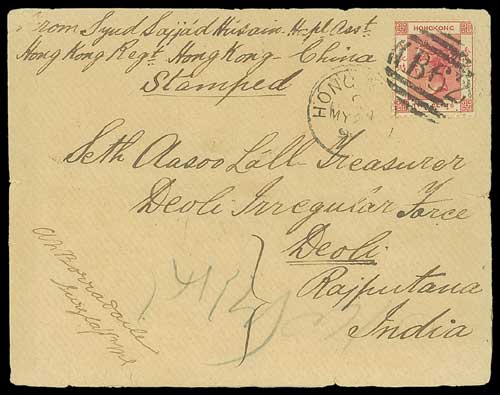 From Syud Sajjád Husain Hospl Asst
Hong Kong Regt Hong Kong - China
Stamped
HONGKONG
B62
HONG
MY
Seth Aasoo Láll Treasurer
Deoli Irregular Force
Deoli
Rajputana
India